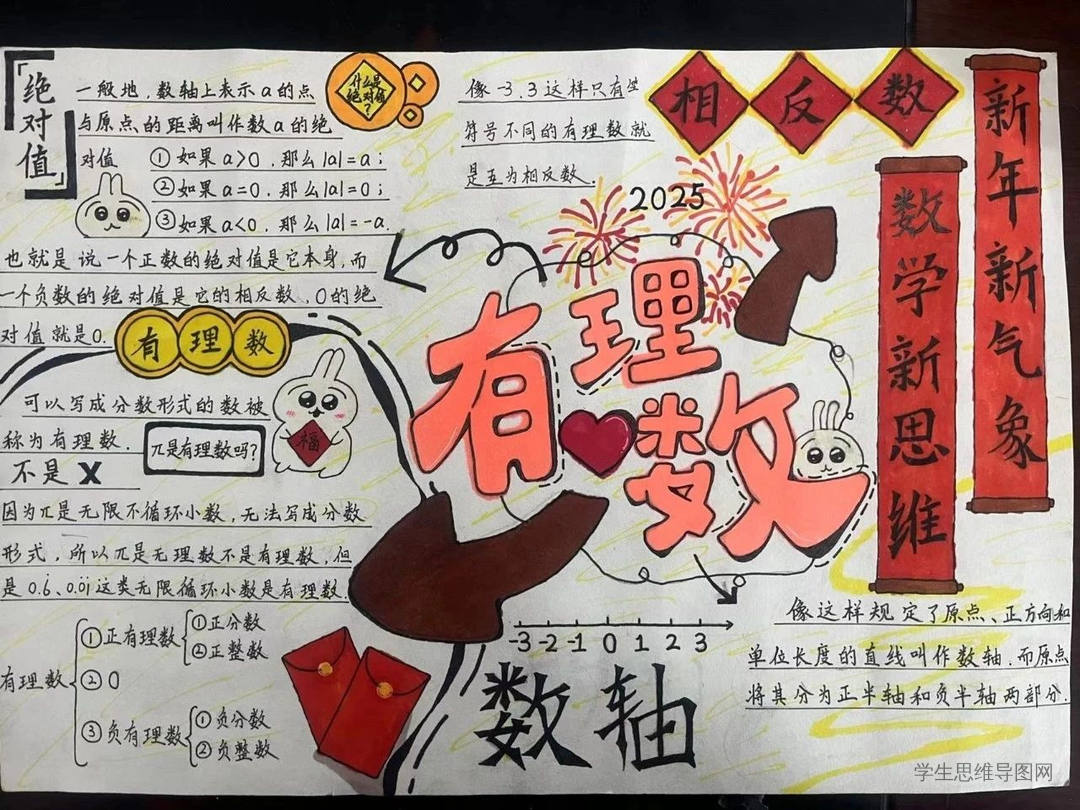 「绝对值」
什么是
绝对值
?
一般地,数轴上表示a的点
与原点的距离叫作数a的绝
对值 ①如果a>0,那么|a|=a;
②如果a=0,那么|a|=0;
③如果a<0,那么|a|=-a.
也就是说一个正数的绝对值是它本身,而
一个负数的绝对值是它的相反数,0的绝
对值就是0.
有理数
可以写成分数形式的数被
称为有理数.
π是有理数吗?
福
不是 X
因为π是无限不循环小数,无法写成分数
形式,所以π是无理数不是有理数,但
是0.6̇、0.0̇1̇这类无限循环小数是有理数.
有理数
①正有理数
①正分数
②正整数
②0
③负有理数
①负分数
②负整数
像-3,3这样只有
符号不同的有理数就
是互为相反数.
相反数
2025
有理数
新年新气象
数学新思维
-3 -2 -1 0 1 2 3
数轴
像这样规定了原点、正方向和
单位长度的直线叫作数轴.而原点
将其分为正半轴和负半轴两部分.
学生思维导图网